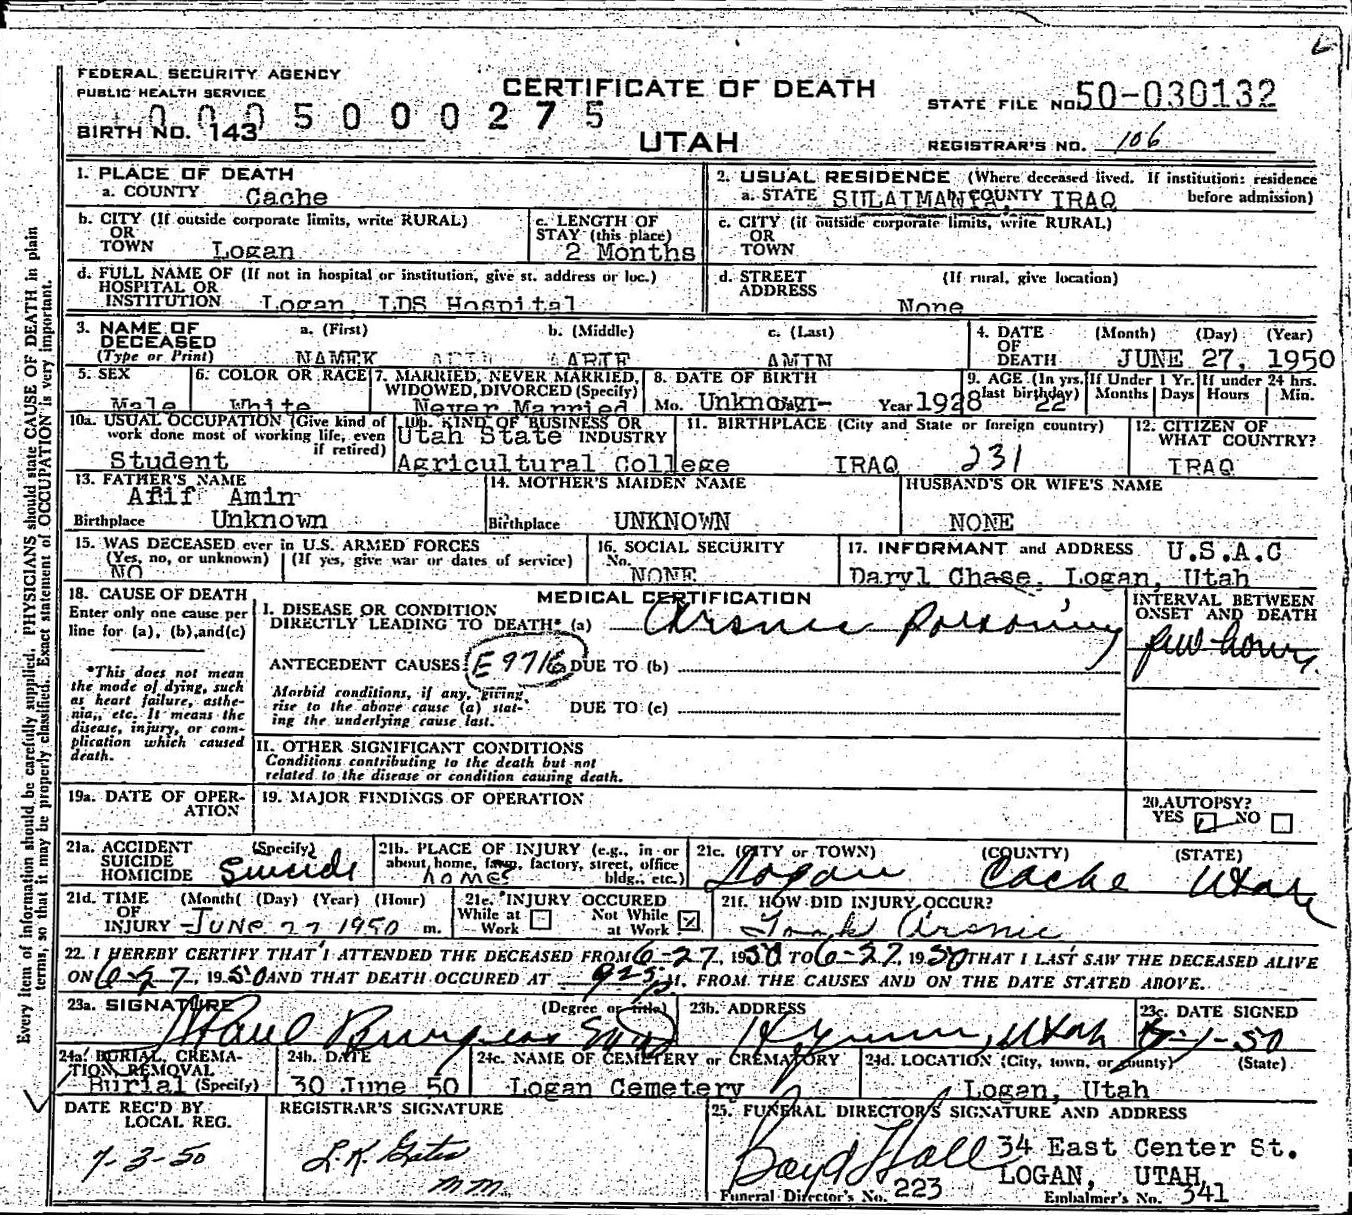 FEDERAL SECURITY AGENCY
PUBLIC HEALTH SERVICE
CERTIFICATE OF DEATH
STATE FILE NO. 50-030132
0005000275
BIRTH NO. 143
UTAH
REGISTRAR'S NO. 106
1. PLACE OF DEATH
a. COUNTY Cache
2. USUAL RESIDENCE (Where deceased lived. If institution: residence before admission)
a. STATE COUNTY IRAQ
b. CITY (If outside corporate limits, write RURAL)
OR
TOWN Logan
c. LENGTH OF
STAY (this place)
2 Months
c. CITY (if outside corporate limits, write RURAL)
OR
TOWN
d. FULL NAME OF (If not in hospital or institution, give st. address or loc.)
HOSPITAL OR
INSTITUTION Logan, LDS Hospital
d. STREET (If rural, give location)
ADDRESS None
3. NAME OF DECEASED
(Type or Print)
a. (First) b. (Middle) c. (Last)
NAMEK AMIN
4. DATE OF DEATH (Month) (Day) (Year)
JUNE 27, 1950
5. SEX
Male
6. COLOR OR RACE
White
7. MARRIED, NEVER MARRIED, WIDOWED, DIVORCED (Specify)
Never Married
8. DATE OF BIRTH
Mo. Unknown Day - Year 1928
9. AGE (In yrs. last birthday) 22
If Under 1 Yr. Months Days
If under 24 hrs. Hours Min.
10a. USUAL OCCUPATION (Give kind of work done most of working life, even if retired)
Student
10b. KIND OF BUSINESS OR INDUSTRY
Utah State
Agricultural College
11. BIRTHPLACE (City and State or foreign country)
IRAQ 231
12. CITIZEN OF WHAT COUNTRY?
IRAQ
13. FATHER'S NAME
Afif Amin
Birthplace Unknown
14. MOTHER'S MAIDEN NAME
Birthplace UNKNOWN
HUSBAND'S OR WIFE'S NAME
NONE
15. WAS DECEASED ever in U.S. ARMED FORCES
(Yes, no, or unknown) (If yes, give war or dates of service)
NO
16. SOCIAL SECURITY
No.
NONE
17. INFORMANT and ADDRESS U.S.A.C
Daryl Chase, Logan, Utah
18. CAUSE OF DEATH
Enter only one cause per line for (a), (b),and(c)
*This does not mean the mode of dying, such as heart failure, asthenia, etc. It means the disease, injury, or complication which caused death.
MEDICAL CERTIFICATION
I. DISEASE OR CONDITION
DIRECTLY LEADING TO DEATH* (a) Arsnic poisoning
INTERVAL BETWEEN ONSET AND DEATH
few hours
ANTECEDENT CAUSES DUE TO (b)
Morbid conditions, if any, giving rise to the above cause (a) stating the underlying cause last.
DUE TO (c)
II. OTHER SIGNIFICANT CONDITIONS
Conditions contributing to the death but not
related to the disease or condition causing death.
19a. DATE OF OPERATION
19. MAJOR FINDINGS OF OPERATION
20. AUTOPSY?
YES NO
21a. ACCIDENT (Specify)
SUICIDE
HOMICIDE Suicide
21b. PLACE OF INJURY (e.g., in or about home, farm, factory, street, office bldg., etc.)
home
21c. (CITY or TOWN) (COUNTY) (STATE)
Logan Cache Utah
21d. TIME OF INJURY (Month) (Day) (Year) (Hour)
JUNE 27 1950 m.
21e. INJURY OCCURED
While at Work Not While at Work
21f. HOW DID INJURY OCCUR?
Took Arsnic
22. I HEREBY CERTIFY THAT I ATTENDED THE DECEASED FROM 6-27, 1950 TO 6-27, 1950 THAT I LAST SAW THE DECEASED ALIVE
ON 6-27, 1950 AND THAT DEATH OCCURED AT 925 M. FROM THE CAUSES AND ON THE DATE STATED ABOVE.
23a. SIGNATURE (Degree or title)
Paul Burgess
23b. ADDRESS
Hyrum, Utah
23c. DATE SIGNED
-1-50
24a. BURIAL, CREMATION, REMOVAL
Burial (Specify)
24b. DATE
30 June 50
24c. NAME OF CEMETERY or CREMATORY
Logan Cemetery
24d. LOCATION (City, town, or county) (State)
Logan, Utah
DATE REC'D BY LOCAL REG.
7-3-50
REGISTRAR'S SIGNATURE
mm
25. FUNERAL DIRECTOR'S SIGNATURE AND ADDRESS
Boyd Hall 34 East Center St.
LOGAN, UTAH
Funeral Director's No. 223 Embalmer's No. 341
Every item of information should be carefully supplied. PHYSICIANS should state CAUSE OF DEATH in plain
terms, so that it may be properly classified. Exact statement of OCCUPATION is very important.